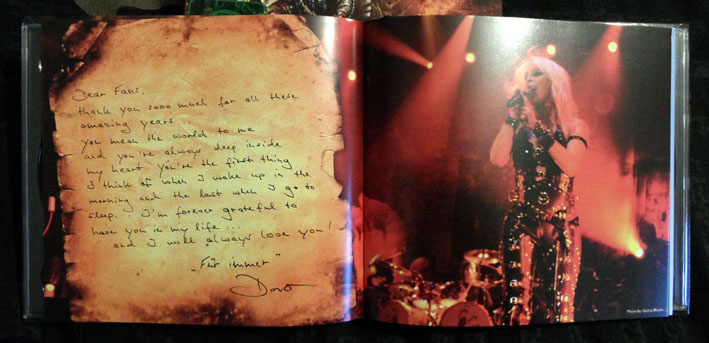 Dear Fans,
thank you sooo much for all these
amazing years
you mean the world to me
and you're always deep inside
my heart. You're the first thing
I think of when I wake up in the
morning and the last when I go to
sleep. I'm forever grateful to
have you in my life ...
and I will always love you!
„Für immer"
Doro
Photo by